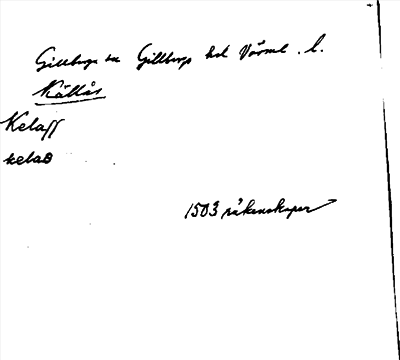 Gillberga sn Gillbergs hd Värml. l.
Källås
Kelass
kelaß
1503 räkenskaper